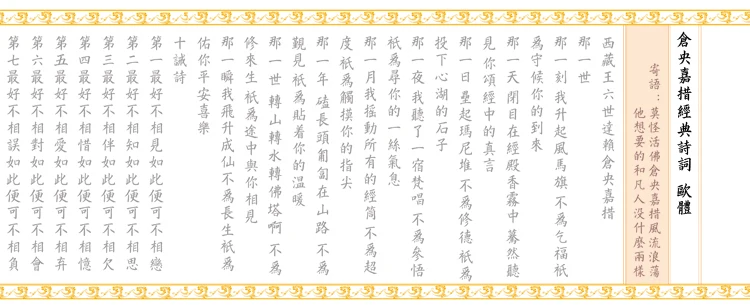 倉央嘉措經典詩詞 歐體
寄語：莫怪活佛倉央嘉措風流浪蕩
他想要的和凡人沒什麼兩樣
西藏王六世達賴倉央嘉措
那一世
那一刻我升起風馬旗不爲乞福祇
爲守候你的到來
那一天閉目在經殿香霧中驀然聽
見你頌經中的真言
那一日壘起瑪尼堆不爲修德祇爲
投下心湖的石子
那一夜我聽了一宿梵唱不爲參悟
祇爲尋你的一絲氣息
那一月我搖動所有的經筒不爲超
度祇爲觸摸你的指尖
那一年磕長頭匍匐在山路不爲
覲見祇爲貼着你的溫暖
那一世轉山轉水轉佛塔啊不爲
修來生祇爲途中與你相見
那一瞬我飛升成仙不爲長生祇爲
佑你平安喜樂
十誡詩
第一最好不相見如此便可不相戀
第二最好不相知如此便可不相思
第三最好不相伴如此便可不相欠
第四最好不相惜如此便可不相憶
第五最好不相愛如此便可不相弃
第六最好不相對如此便可不相會
第七最好不相誤如此便可不相負